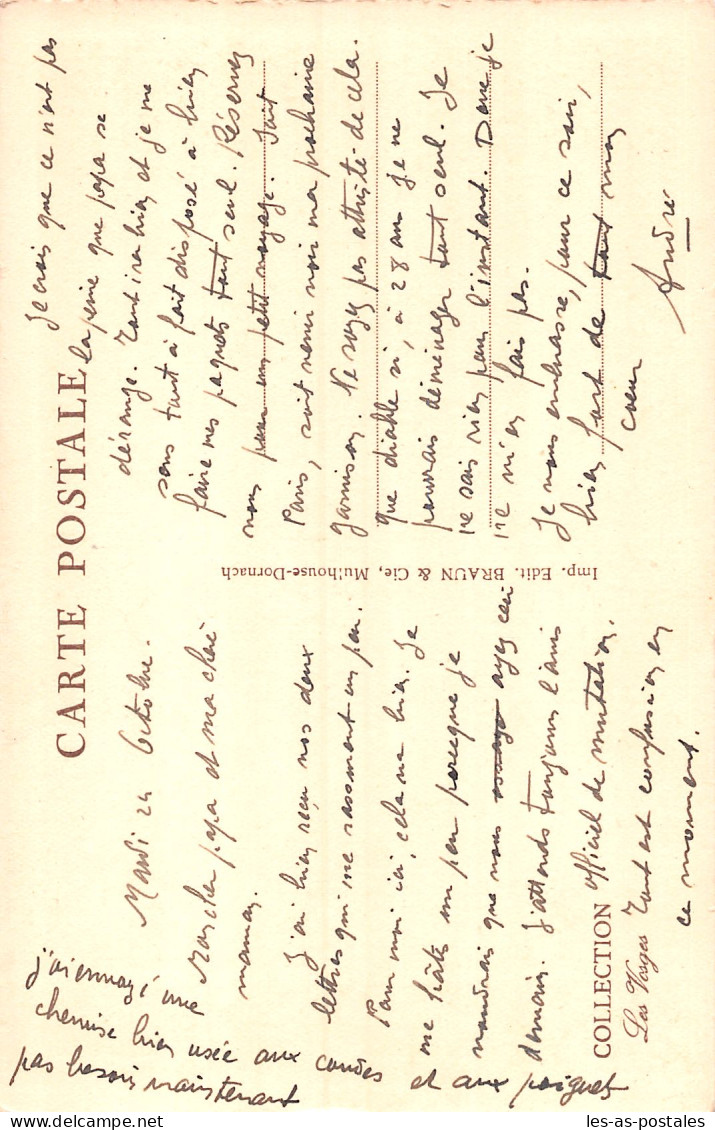 CARTE POSTALE
Mardi 24 Octobre.
Mon cher papa et ma chère
maman.
J'ai bien reçu vos deux
lettres qui me rassurent un peu.
Pour moi ici, cela va bien. Je
me hâte un peu parce que je
voudrais que vous ayez ceci
demain. J'attends toujours l'avis
officiel de mutation.
Tout est confusion en
ce moment.
Je crois que ce n'est pas
la peine que papa se
dérange. Tout ira bien et je me
sens tout à fait disposé à bien
faire mes paquets tout seul. Réservez
vous pour un petit voyage. Soit
Paris, soit venir voir ma prochaine
garnison. Ne soyez pas attristé de cela.
que diable si, à 28 ans je ne
pouvais déménager tout seul. Je
ne sais rien pour l'instant. Donc je
ne m'en fais pas.
Je vous embrasse, pour ce soir,
bien fort de tout mon
coeur
André
j'ai envoyé une
chemise bien usée aux coudes et aux poignets
pas besoin maintenant
Imp. Edit. BRAUN & Cie, Mulhouse-Dornach
COLLECTION
Les Vosges
les-as-postales